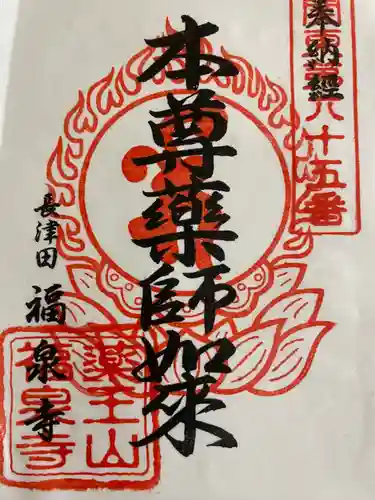 奉納經
八十五番
本尊藥師如来
長津田
福泉寺
薬王山
福泉寺